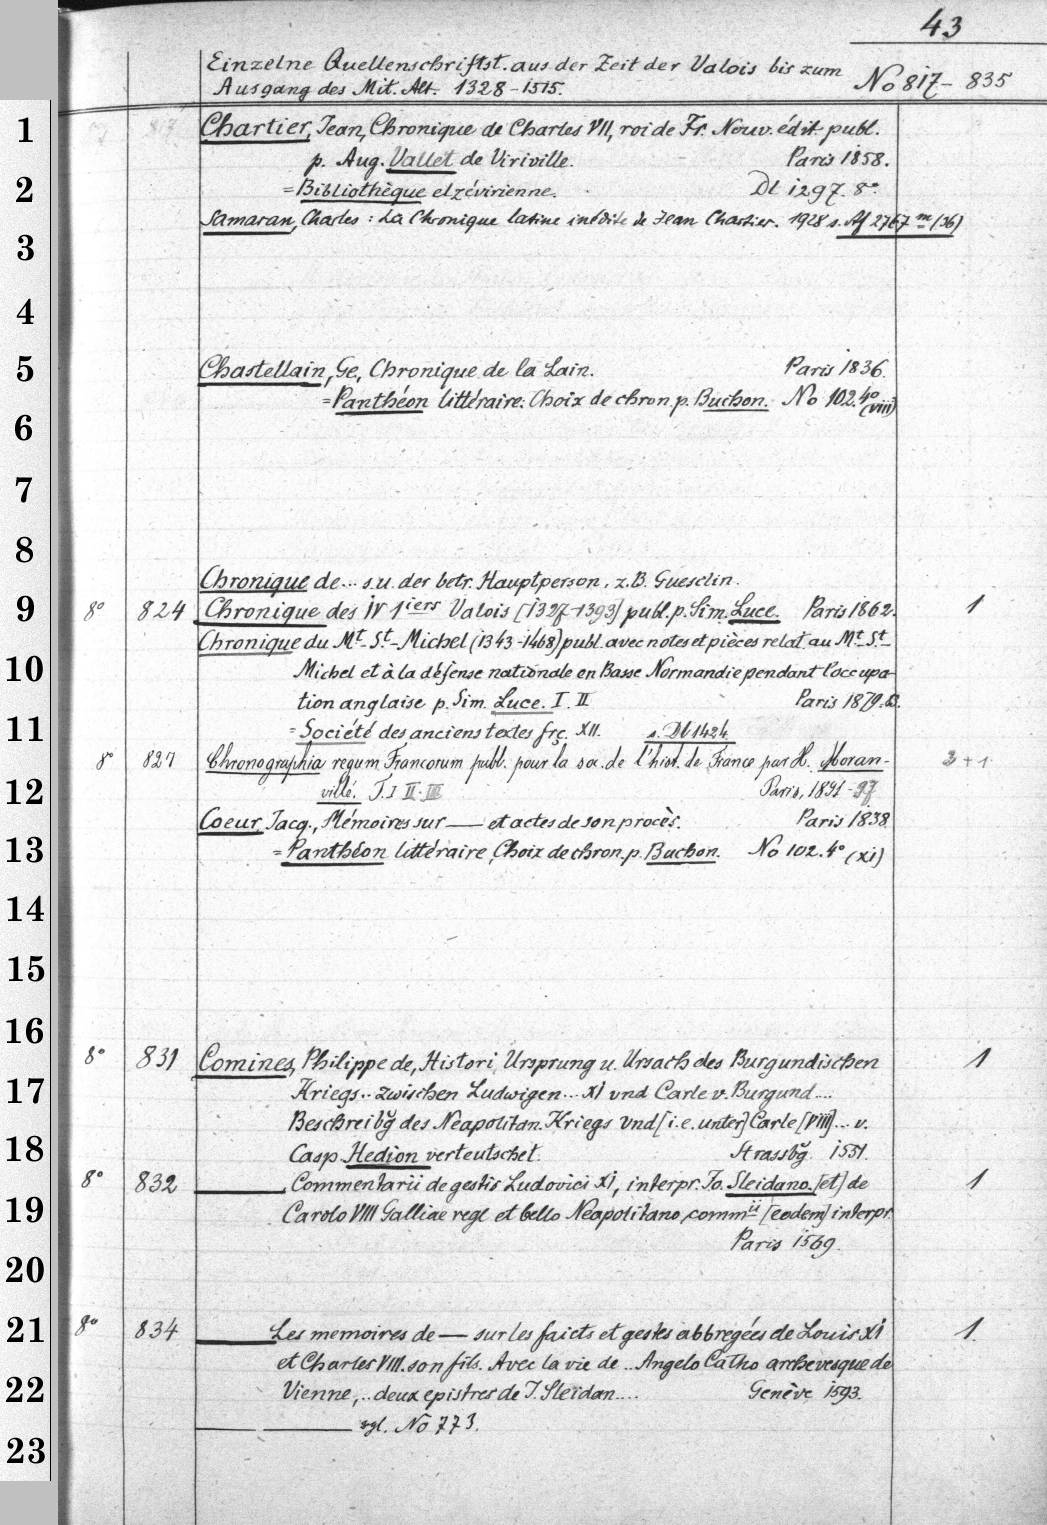 43
Einzelne Quellenschriftst. aus der Zeit der Valois bis zum
Ausgang des Mit. Alt. 1328-1515. No 817-835
1 Chartier, Jean, Chronique de Charles VII, roi de Fr. Nouv. édit. publ.
p. Aug. Vallet de Viriville. Paris 1858.
2 =Bibliothèque elzévirienne. Dl 1297. 8°.
Samaran, Charles: La Chronique latine inédite de Jean Chartier. 1928 s. Af 2767 m (36)
3
4
5 Chastellain, Ge, Chronique de la Lain. Paris 1836.
=Panthéon littéraire: Choix de chron. p. Buchon. No 102. 4° (VIII)
6
7
8
Chronique de... s. u. der betr. Hauptperson, z. B. Guesclin.
9 8° 824 Chronique des IV 1iers Valois [1327-1393] publ. p. Sim. Luce. Paris 1862. 1
Chronique du Mt-St-Michel (1343-1468) publ. avec notes et pièces relat au Mt-St-
10 Michel et à la défense nationale en Basse Normandie pendant l'occupa-
tion anglaise p. Sim. Luce. I. II Paris 1879.
11 =Société des anciens textes frç. XII. s. Dl 1424
8° 827 Chronographia regum Francorum publ. pour la soc. de l'hist. de France par H. Moran- 2+1
12 villé. T. I II-III Paris, 1891-97
Coeur, Jacq., Mémoires sur — et actes de son procès. Paris 1838
13 =Panthéon littéraire, Choix de chron. p. Buchon. No 102. 4° (XI)
14
15
16
8° 831 Comines, Philippe de, Histori, Ursprung u. Ursach des Burgundischen 1
17 Kriegs.. zwischen Ludwigen... XI vnd Carle v. Burgund....
Beschreibg des Neapolitan. Kriegs vnd [i. e. unter] Carle [VIII]... v.
18 Casp. Hedion verteutschet. Strassbg. 1551.
8° 832 — Commentarii de gestis Ludovici XI, interpr. Jo. Sleidano. [et] de 1
19 Carolo VIII Galliae rege et bello Neapolitano commii [eodem] interpr.
Paris 1569.
20
21 8° 834 — Les memoires de — sur les faicts et gestes abbregées de Louis XI 1
et Charles VIII. son fils. Avec la vie de .. Angelo Catho archevesque de
22 Vienne,.. deux epistres de J. Sleidan.... Genève 1593.
— — vgl. No 773.
23